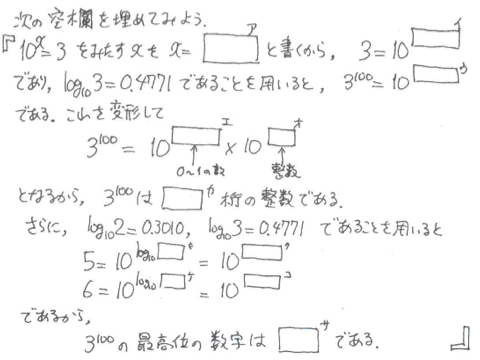 次の空欄を埋めてみよう.
『10^x=3 をみたす x を x= ア と書くから, 3=10^イ
であり, log₁₀3=0.4771 であることを用いると, 3^100=10^ウ
である. これを変形して
3^100 = 10^エ × 10^オ
0~1の数 整数
となるから, 3^100 は カ 桁の整数である.
さらに, log₁₀2=0.3010, log₁₀3=0.4771 であることを用いると
5=10^log₁₀キ = 10^ク
6=10^log₁₀ケ = 10^コ
であるから,
3^100 の 最高位の数字は サ である. 』